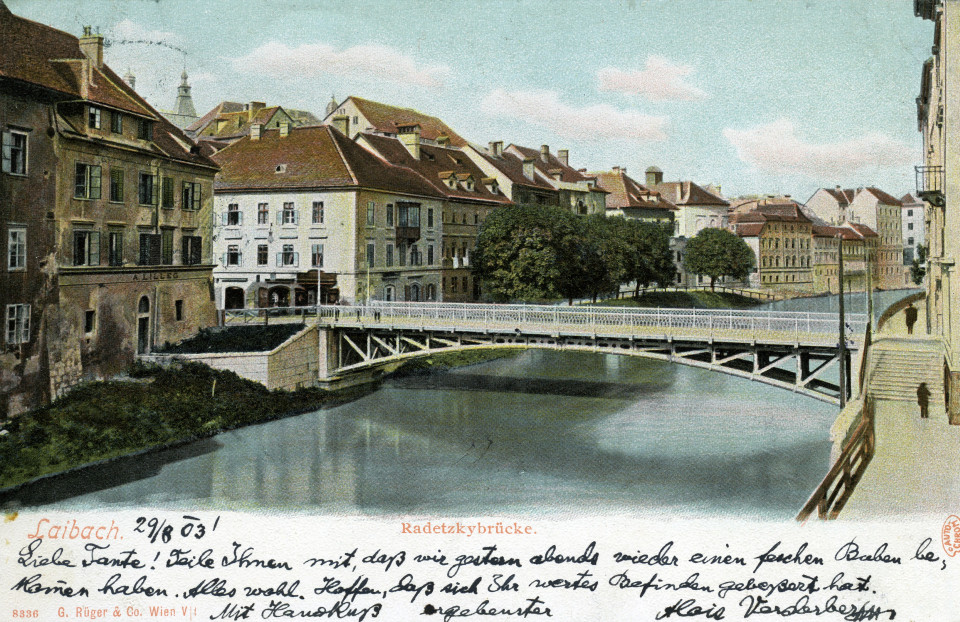 A. LILLEG
Laibach. 29/8 03!
Radetzkybrücke.
Liebe Tante! Teile Ihnen mit, daß wir gestern abends wieder einen feschen Buben be,
kommen haben. Alles wohl. Hoffen, daß sich Ihr wertes Befinden gebeßert hat.
Mit Handkuß ergebenster Alois Vorderber
8336 G. Rüger & Co. Wien V
AUTO-CHROM